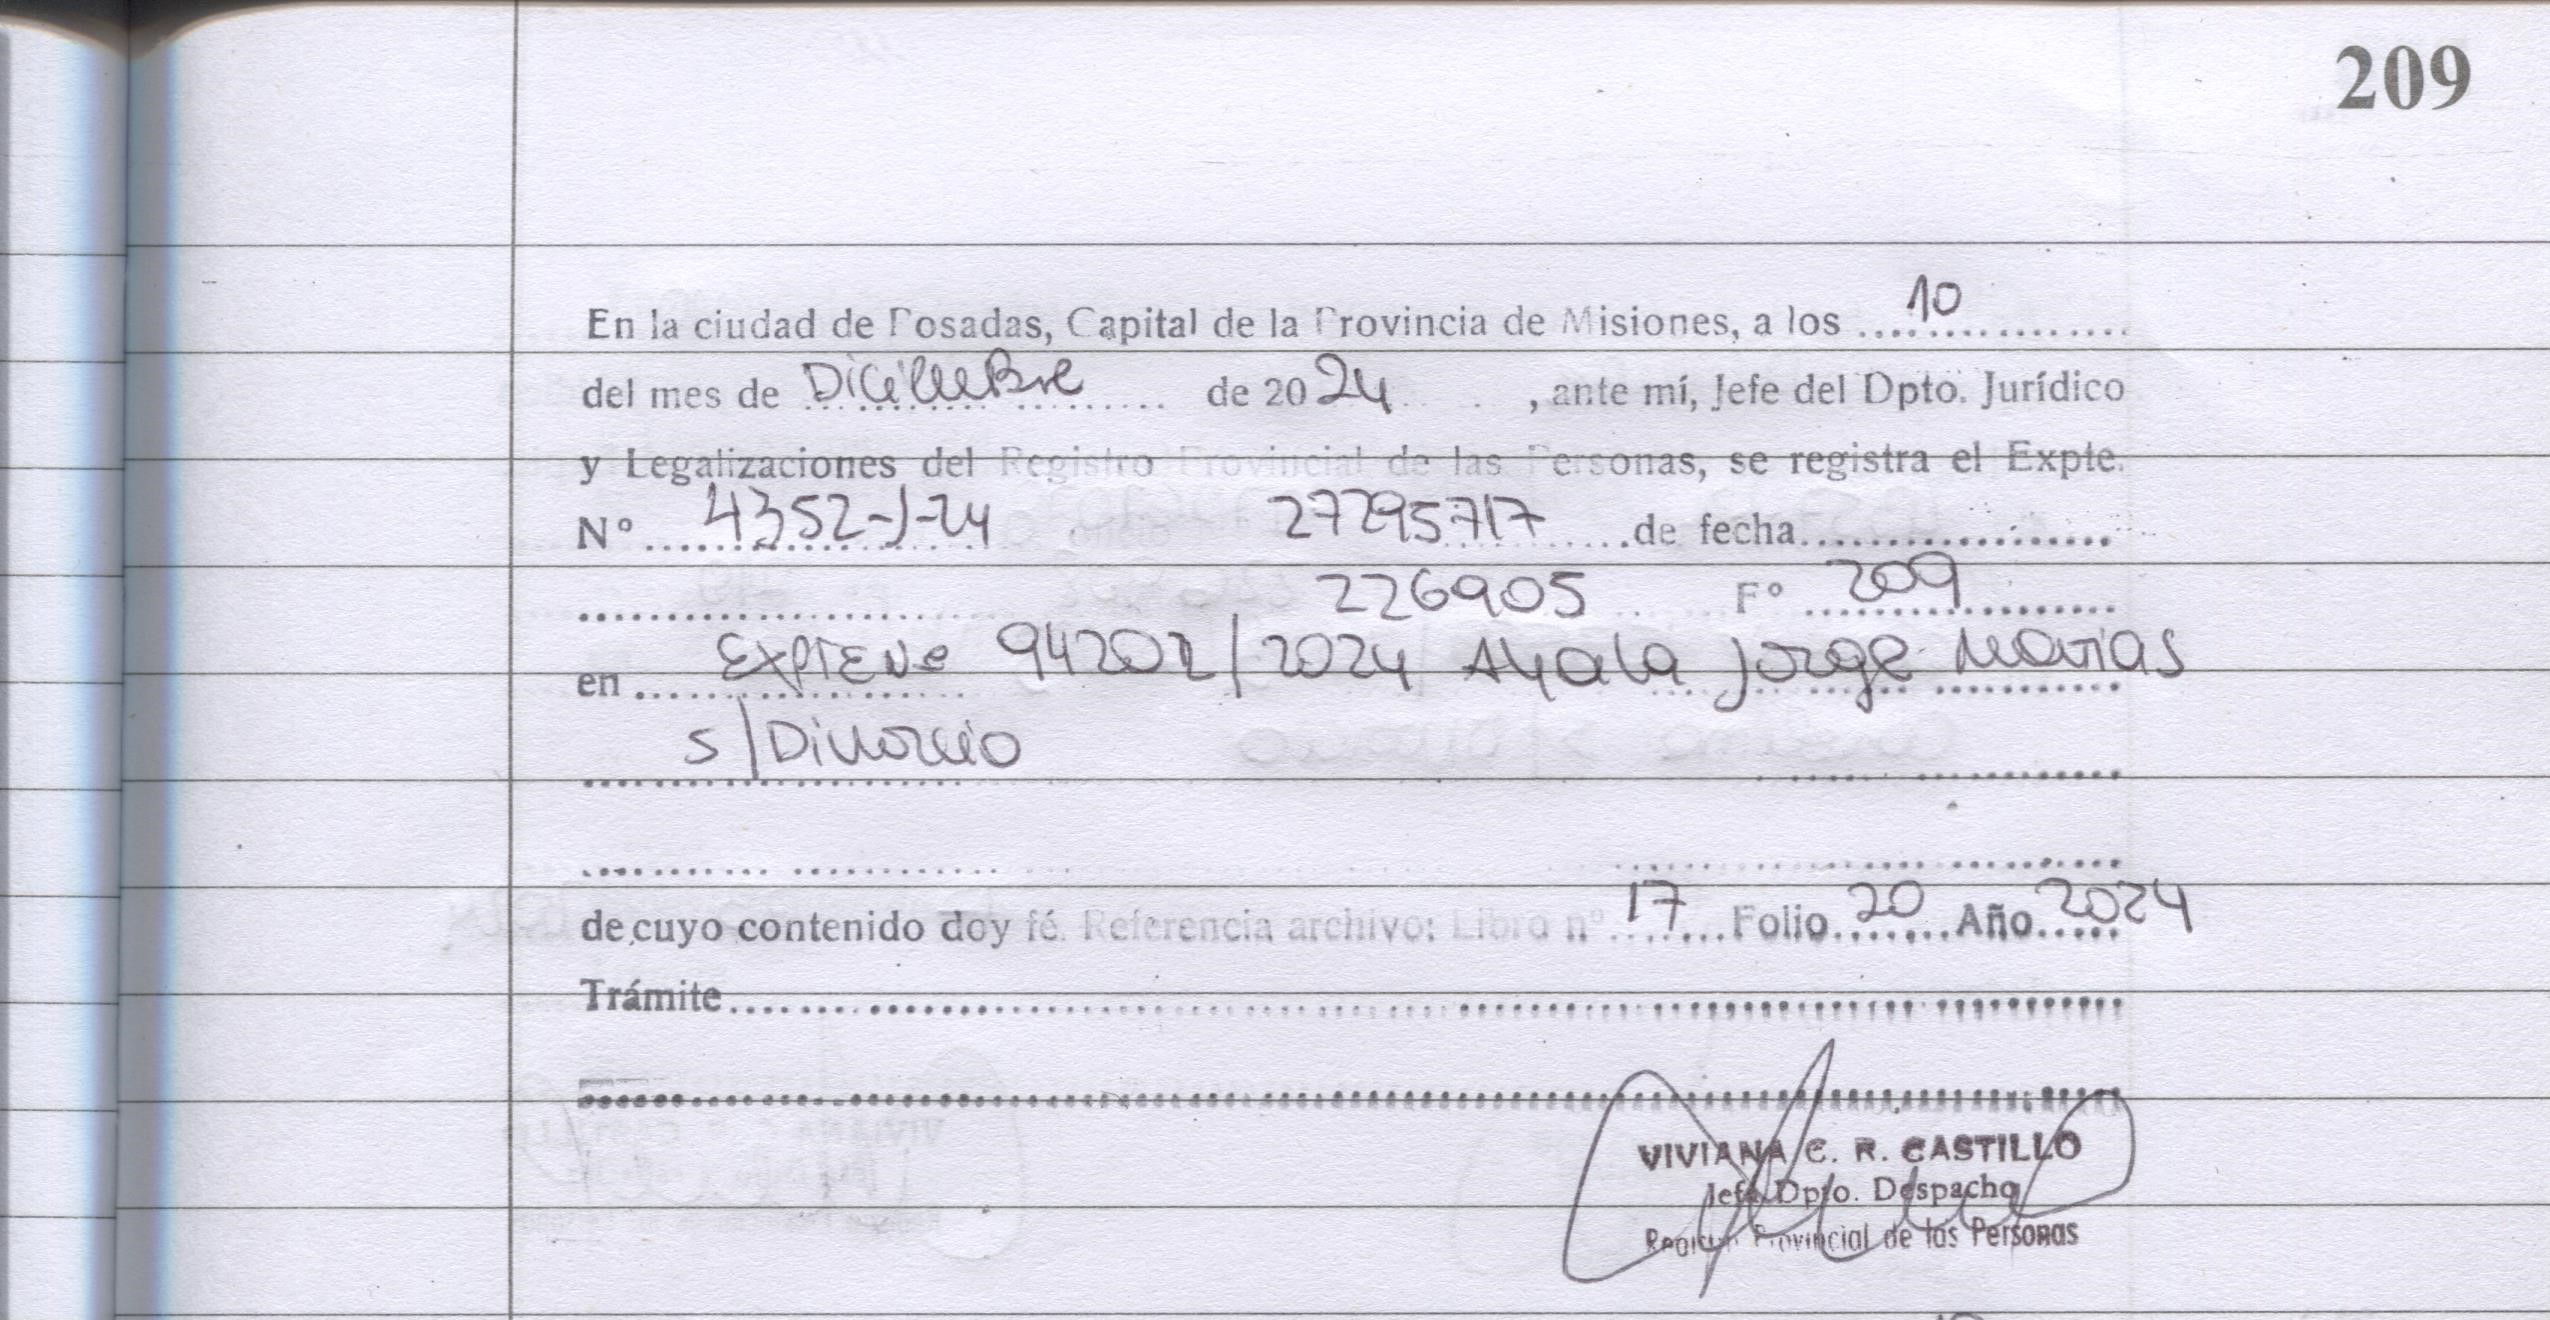 209
En la ciudad de Posadas, Capital de la Provincia de Misiones, a los 10
del mes de Diciembre de 2024, ante mí, Jefe del Dpto. Jurídico
y Legalizaciones del Registro Provincial de las Personas, se registra el Expte.
Nº 4352-J-24 27295717 de fecha
226905 Fº 209
en Expte Nº /2024 Ayala Jorge Matias
s/Divorcio
de cuyo contenido doy fé. Referencia archivo: Libro nº 17 Folio 20 Año 2024
Trámite
VIVIANA C. R. CASTILLO
Jefe Dpto. Despacho
Registro Provincial de las Personas